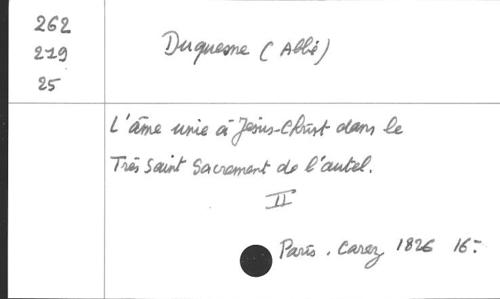 262
219
25
Duquesne (Abbé)
L'âme unie à Jésus-Christ dans le
Très Saint Sacrement de l'autel.
II
Paris. Carez 1826 16-